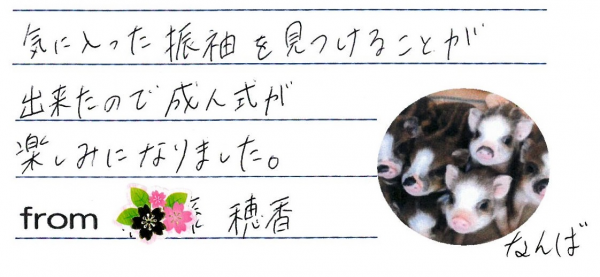 気に入った振袖を見つけることが
出来たので成人式が
楽しみになりました。
from 穂香
なんば